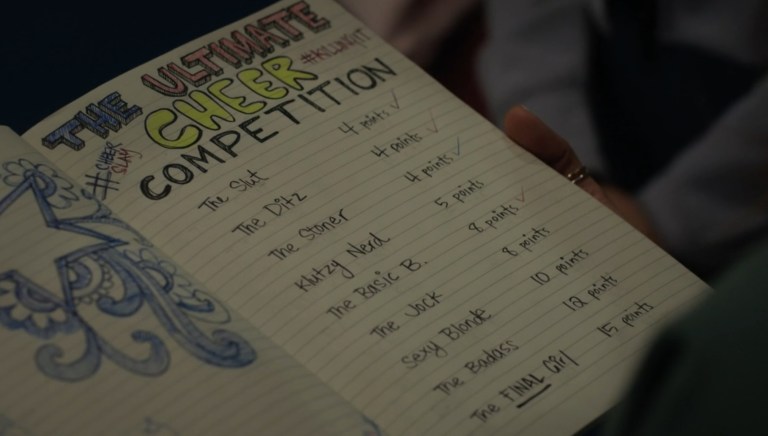 THE ULTIMATE
CHEER #KILLINGIT
#CHEER
SLAY
COMPETITION
The Slut 4 points ✓
The Ditz 4 points ✓
The Stoner 4 points ✓
Klutzy Nerd 5 points
The Basic B. 8 points ✓
The Jock 8 points
Sexy Blonde 10 points
The Badass 12 points
The FINAL Girl 15 points